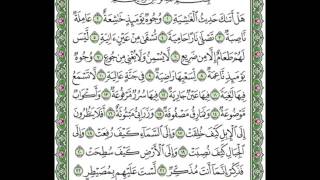 هَلْ أَتَىٰكَ حَدِيثُ ٱلْغَٰشِيَةِ ۝١ وُجُوهٌ يَوْمَئِذٍ خَٰشِعَةٌ ۝٢ عَامِلَةٌ
نَّاصِبَةٌ ۝٣ تَصْلَىٰ نَارًا حَامِيَةً ۝٤ تُسْقَىٰ مِنْ عَيْنٍ ءَانِيَةٍ ۝٥ لَّيْسَ
لَهُمْ طَعَامٌ إِلَّا مِن ضَرِيعٍ ۝٦ لَّا يُسْمِنُ وَلَا يُغْنِي مِن جُوعٍ ۝٧ وُجُوهٌ
يَوْمَئِذٍ نَّاعِمَةٌ ۝٨ لِّسَعْيِهَا رَاضِيَةٌ ۝٩ فِي جَنَّةٍ عَالِيَةٍ ۝١٠ لَّا تَسْمَعُ
فِيهَا لَٰغِيَةً ۝١١ فِيهَا عَيْنٌ جَارِيَةٌ ۝١٢ فِيهَا سُرُرٌ مَّرْفُوعَةٌ ۝١٣ وَأَكْوَابٌ
مَّوْضُوعَةٌ ۝١٤ وَنَمَارِقُ مَصْفُوفَةٌ ۝١٥ وَزَرَابِيُّ مَبْثُوثَةٌ ۝١٦ أَفَلَا يَنظُرُونَ
إِلَى ٱلْإِبِلِ كَيْفَ خُلِقَتْ ۝١٧ وَإِلَى ٱلسَّمَآءِ كَيْفَ رُفِعَتْ ۝١٨ وَإِلَى
ٱلْجِبَالِ كَيْفَ نُصِبَتْ ۝١٩ وَإِلَى ٱلْأَرْضِ كَيْفَ سُطِحَتْ ۝٢٠
فَذَكِّرْ إِنَّمَآ أَنتَ مُذَكِّرٌ ۝٢١ لَّسْتَ عَلَيْهِم بِمُصَيْطِرٍ ۝٢٢